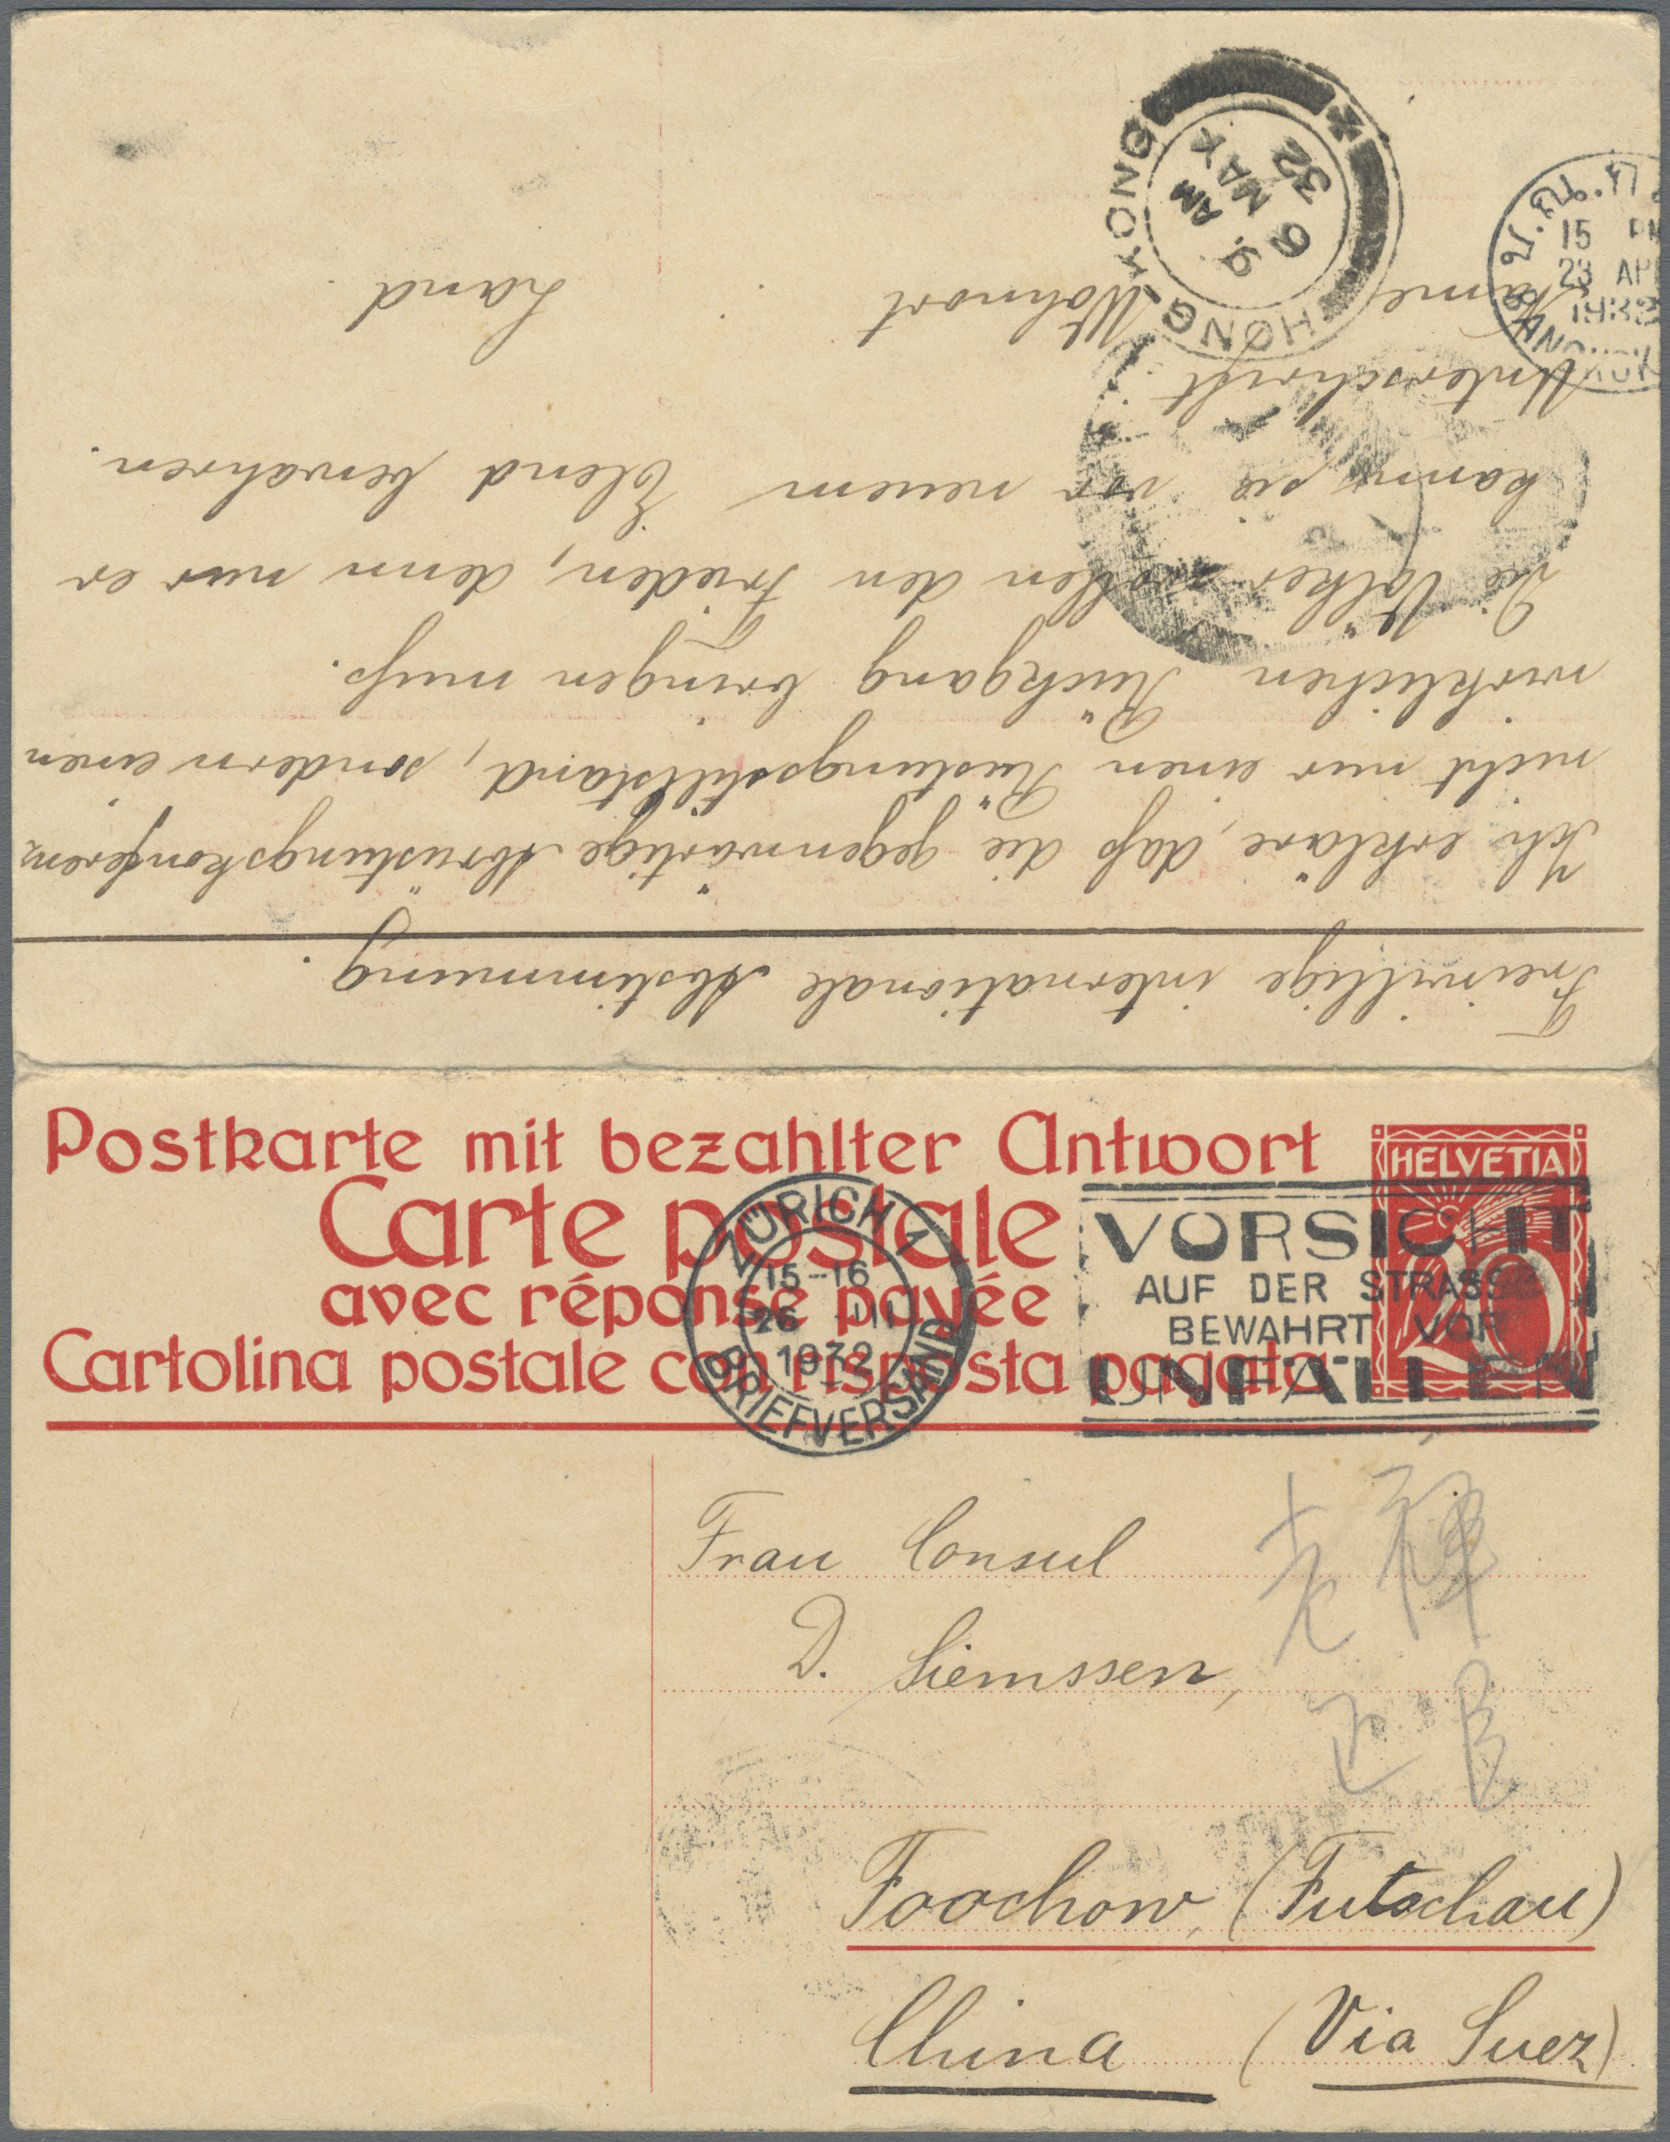 Freiwillige internationale Abstimmung.
Ich erkläre, daß die gegenwärtige Abrüstungskonferenz
nicht nur einen Rüstungsstillstand, sondern einen
wirklichen Rückgang bringen muß.
Die Völker wollen den Frieden, denn nur er
kann sie vor neuem Elend bewahren.
Unterschrift
Name Wohnort Land
HONG KONG
9. AM
6 MAY
32
บ.ณ.ก
15 PM
23 AP
1932
BANGKOK
Postkarte mit bezahlter Antwort
Carte postale
avec réponse payée
Cartolina postale con risposta pagata
HELVETIA
20
ZÜRICH 1
15-16
26 III
1932
BRIEFVERSAND
VORSICHT
AUF DER STRASSE
BEWAHRT VOR
UNFÄLLEN
Frau Consul
D. Siemssen,
Foochow, (Futschau)
China (Via Suez)